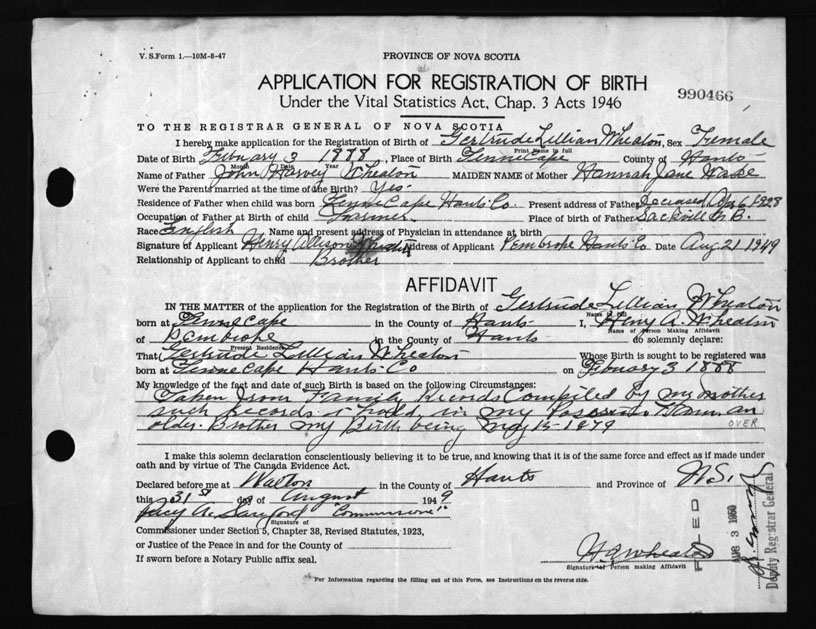 V. S. Form 1.—10M-8-47
PROVINCE OF NOVA SCOTIA
APPLICATION FOR REGISTRATION OF BIRTH
990466
Under the Vital Statistics Act, Chap. 3 Acts 1946
TO THE REGISTRAR GENERAL OF NOVA SCOTIA
I hereby make application for the Registration of Birth of Gertrude Lillian Wheaton, Sex Female
Print Name in full
Date of Birth February 3 1888, Place of Birth Tenne Cape County of Hants
Month Date Year
Name of Father John Harvey Wheaton MAIDEN NAME of Mother Hannah Jane
Were the Parents married at the time of the Birth? Yes.
Residence of Father when child was born Tenne Cape Hants Co. Present address of Father Deceased Apr 6 1928
Occupation of Father at Birth of child Farmer Place of birth of Father Sackville N.B.
Race English Name and present address of Physician in attendance at birth
Signature of Applicant Henry Allison Address of Applicant Pembroke Hants Co Date Aug 21 1949
Relationship of Applicant to child Brother
AFFIDAVIT
IN THE MATTER of the application for the Registration of the Birth of Gertrude Lillian Wheaton
Name in full
born at Tenne Cape in the County of Hants I, Henry A. Wheaton
Name of Person Making Affidavit
of Pembroke in the County of Hants do solemnly declare:
Present Residence
That Gertrude Lillian Wheaton Whose Birth is sought to be registered was
born at Tenne Cape Hants Co on February 3 1888
My knowledge of the fact and date of such Birth is based on the following Circumstances:
Taken from Family Records Compiled by my mother
such records held in my I am an
older Brother my Birth being May 15-1879
OVER
I make this solemn declaration conscientiously believing it to be true, and knowing that it is of the same force and effect as if made under
oath and by virtue of The Canada Evidence Act.
Declared before me at Walton in the County of Hants and Province of N.S.
this 31st day of August 1949
Sanford Commissioner
Signature of
Commissioner under Section 5, Chapter 38, Revised Statutes, 1923,
or Justice of the Peace in and for the County of
H A Wheaton
If sworn before a Notary Public affix seal.
Signature of Person making Affidavit
For Information regarding the filling out of this Form, see Instructions on the reverse side.
FILED
AUG 3 1950
Deputy Registrar General